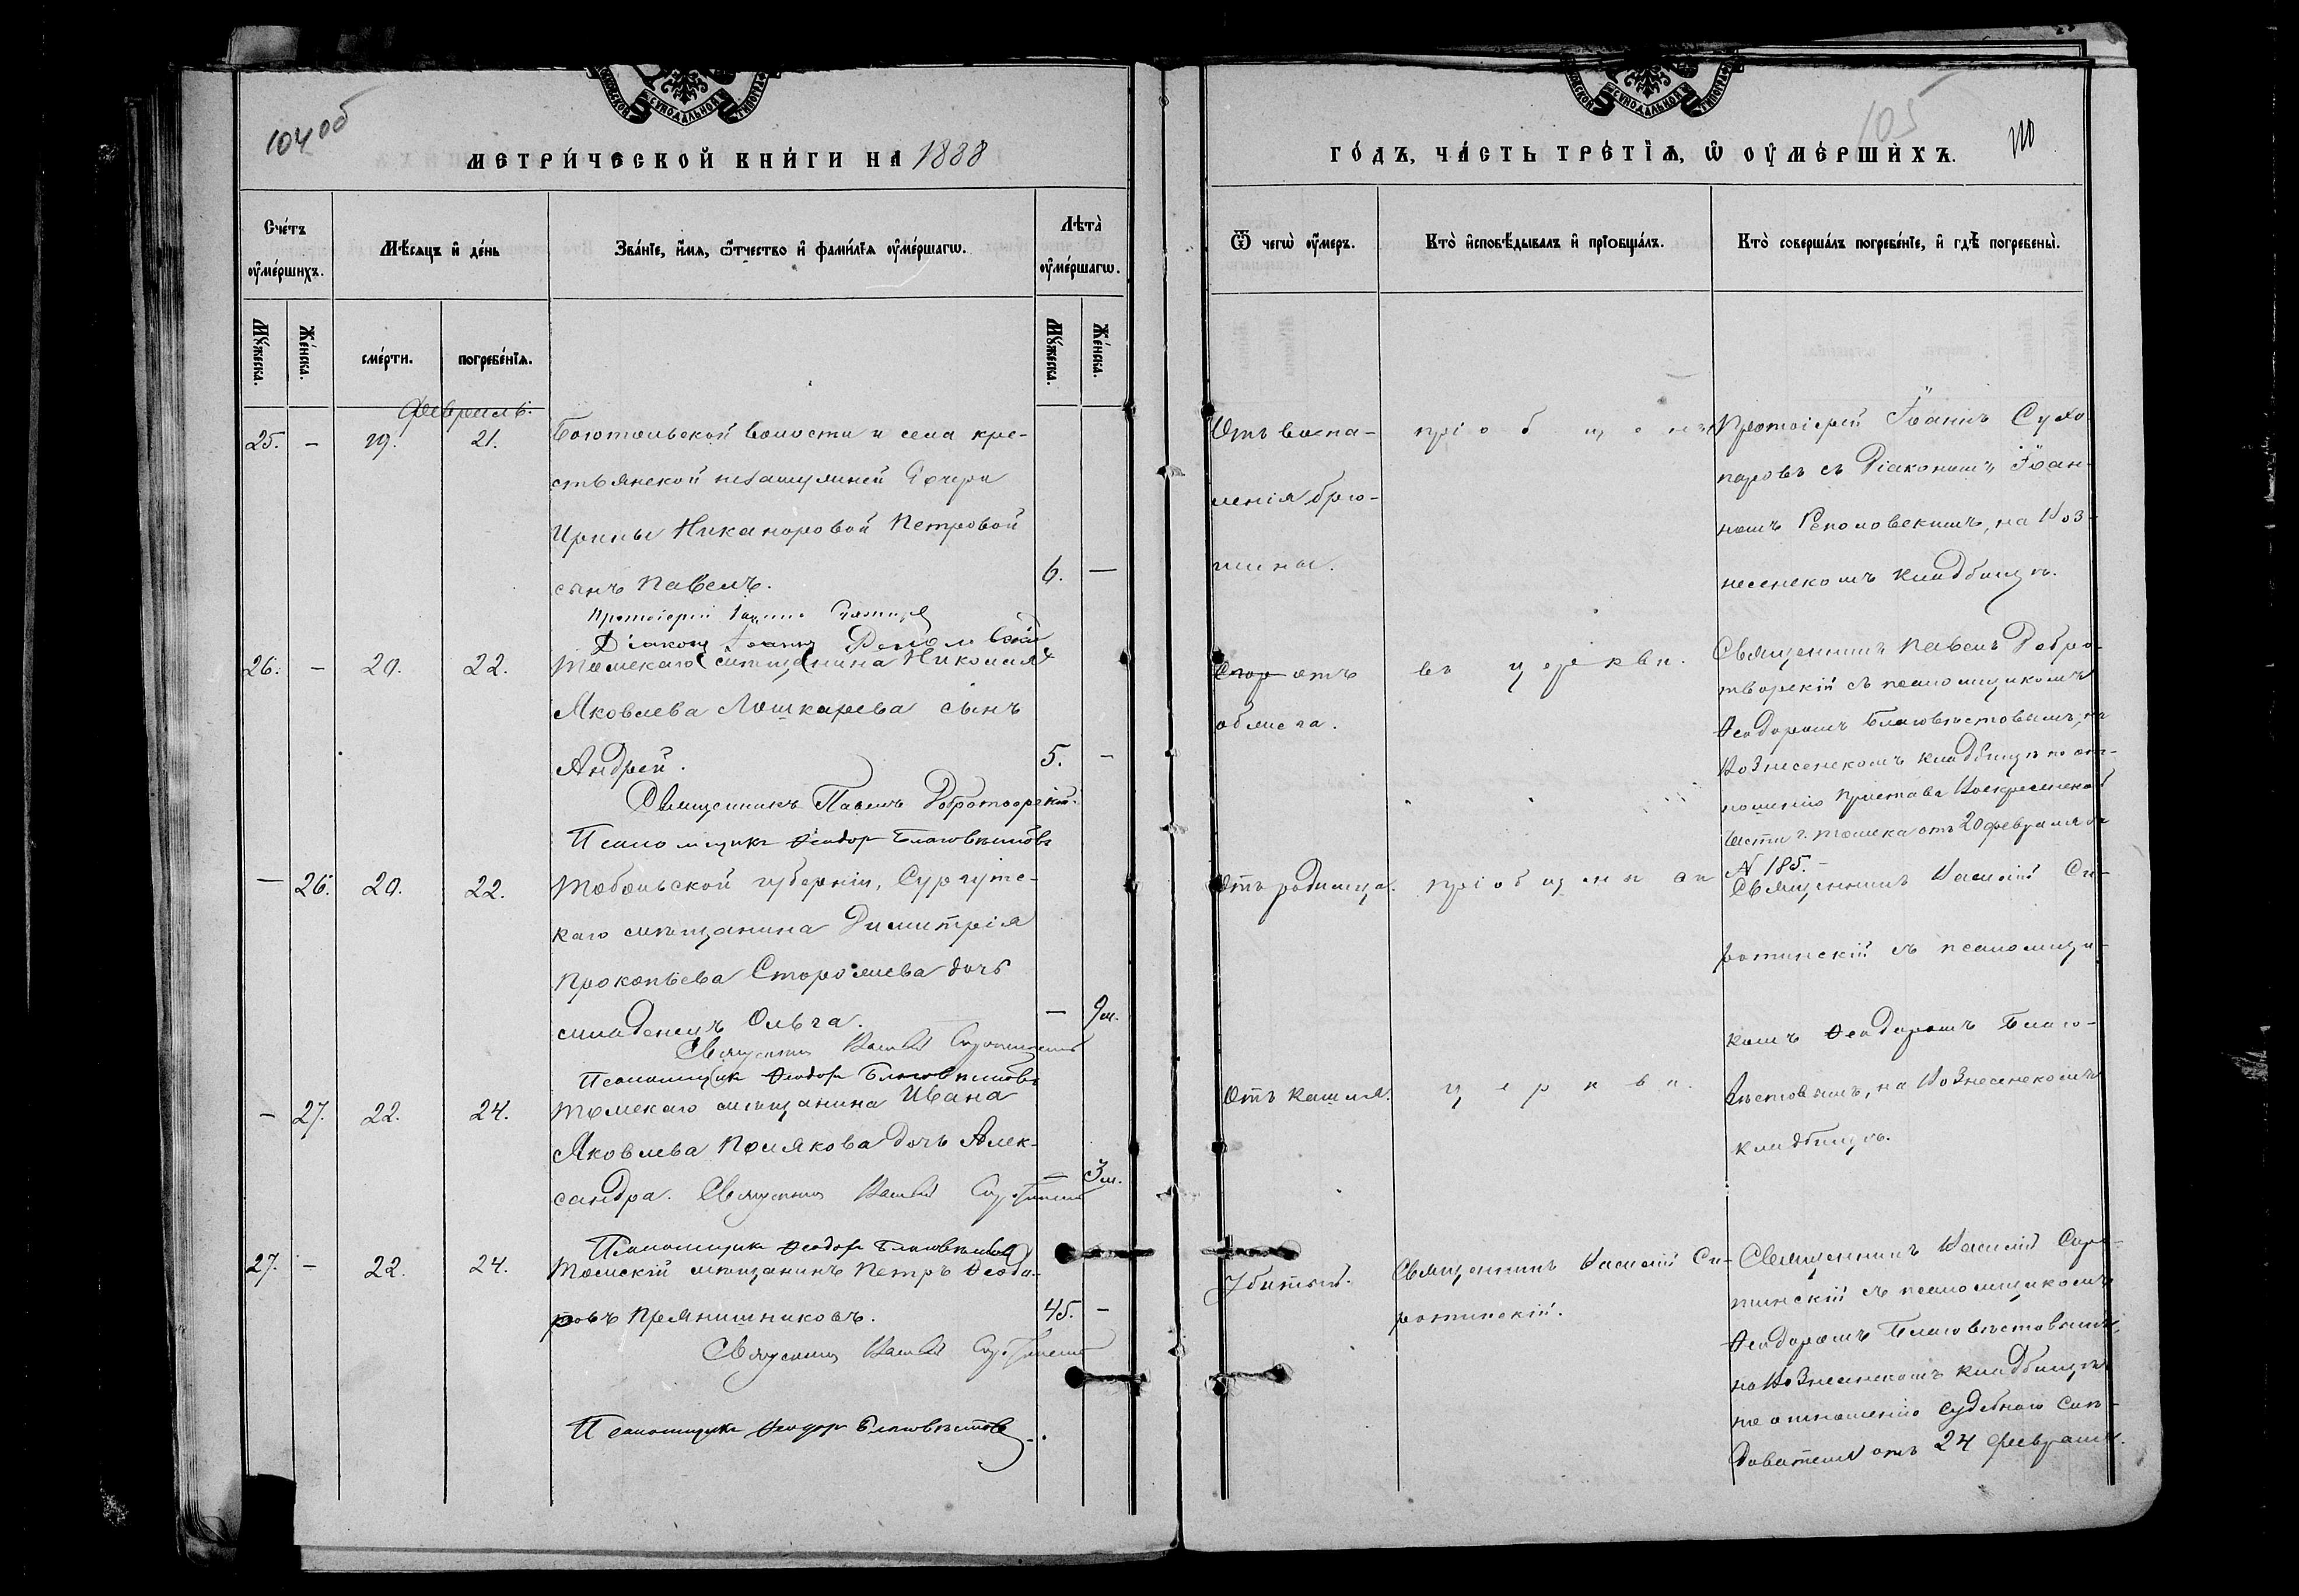 104 об
МЕТРИ́ЧЕСКОЙ КНИ́ГИ НА 1888
Сче́тъ оу҆ме́ршихъ.
Мѣ́сяцъ и҆ де́нь
Зва́нїе, и҆́мя, ѻ҆́тчество и҆ фами́лїя оу҆ме́ршагѡ.
Лѣта̀ оу҆ме́ршагѡ.
Му́жеска.
Же́нска.
сме́рти.
погребе́нїя.
Му́жеска.
Же́нска.
Февраль.
25. – 19. 21. Боготольской волости и села кре-
стьянской дочери
Ирины Никаноровой Петровой
сынъ Павелъ. 6. —
Протоіерей
Діаконъ Іоаннъ
26. – 20. 22. Томскаго мѣщанина Николая
Яковлева Лошкарева сынъ
Андрей. 5. –
Священникъ Павелъ Добротворскій.
Псаломщикъ Ѳеодоръ Благовѣстовъ
— 26. 20. 22. Тобольской губерніи, Сургутс-
каго мѣщанина Димитрія
Прокопьева дочь
младенецъ Ольга. — 9 м.
Священникъ Василій Сиротинскій
Псаломщикъ Ѳеодоръ Благовѣстовъ
– 27. 22. 24. Томскаго мѣщанина Ивана
Яковлева Полякова дочь Алек-
сандра. — 3 м. Священникъ Василій Сиротинскій
Псаломщикъ Ѳеодоръ Благовѣстовъ
27. – 22. 24. Томскій мѣщанинъ Петръ Ѳеодо-
ровъ Прянишниковъ. 45. –
Священникъ Василій Сиротинскій
Псаломщикъ Ѳеодоръ Благовѣстовъ
105
110
ГО́ДЪ, ЧА́СТЬ ТРЕ́ТЇЯ, Ѡ҆ ОУ҆МЕ́РШИХЪ.
Ѿ чегѡ̀ оу҆́меръ.
Кто̀ и҆сповѣ́дывалъ и҆ прїобща́лъ.
Кто̀ соверша́лъ погребе́нїе, и҆ гдѣ̀ погребены̀.
Отъ воспа- пріобщенъ Протоіерей Іоаннъ Сухо
паровъ съ Діакономъ Іоан-
ленія брю-
номъ Реполовскимъ, на Воз-
шины.
несенскомъ кладбищѣ.
отъ въ церкви. Священникъ Павелъ Добро-
творскій съ псаломщикомъ
ожога.
Ѳеодоромъ Благовѣстовымъ, на
Вознесенскомъ кладбищѣ по от-
ношенію Пристава Воскресенской
части г. Томска отъ 20 февраля за
N 185.
Отъ родимца. пріобщена Священникъ Василій Си-
ротинскій съ псаломщи-
комъ Ѳеодоромъ Благо-
Отъ кашля. церкви. вѣстовымъ, на Вознесенскомъ
кладбищѣ.
Убитый. Священникъ Василій Си- Священникъ Василій Сиро-
ротинскій. тинскій съ псаломщикомъ
Ѳеодоромъ Благовѣстовымъ,
на Вознесенскомъ кладбищѣ
по отношенію Судебнаго Слѣ-
дователя отъ 24 февраля.